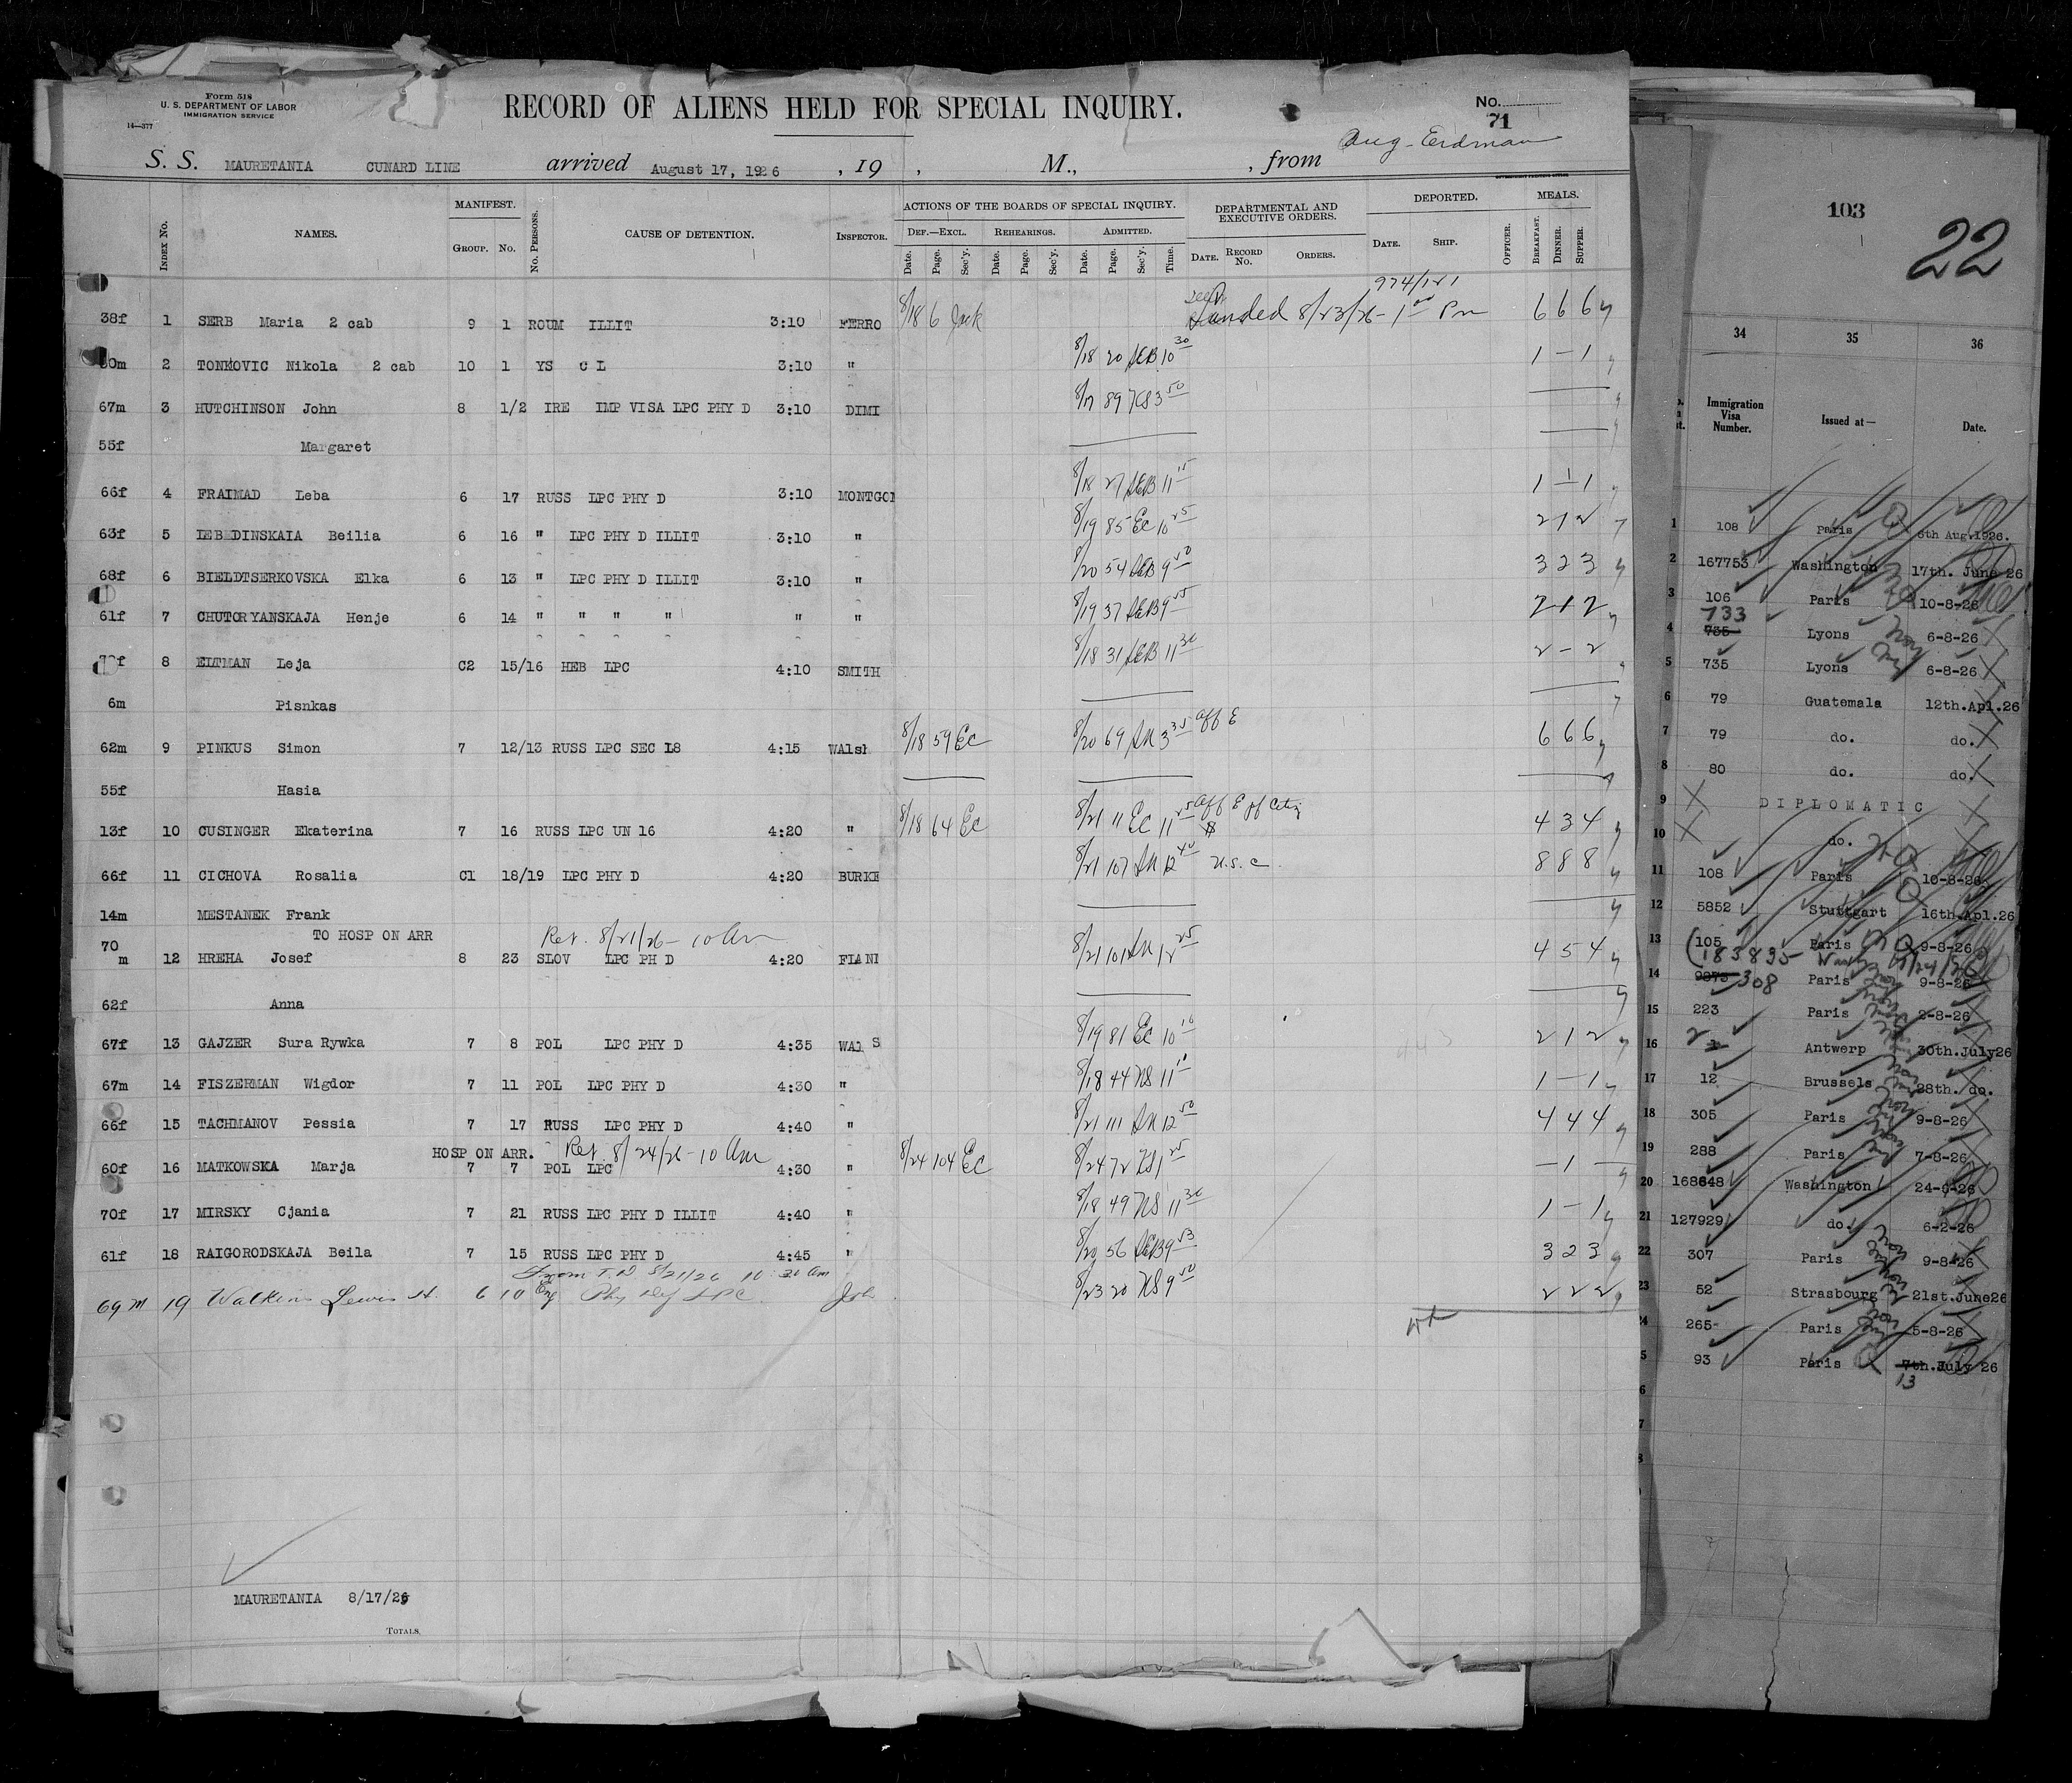 Form 518
U. S. DEPARTMENT OF LABOR
IMMIGRATION SERVICE
14—377
RECORD OF ALIENS HELD FOR SPECIAL INQUIRY.
No.
71
Aug- Erdman
S. S. MAURETANIA CUNARD LINE arrived August 17, 1926 , 19 , M., , from
Index No. NAMES. MANIFEST. Group. No. No. Persons. CAUSE OF DETENTION. Inspector. ACTIONS OF THE BOARDS OF SPECIAL INQUIRY. DEPARTMENTAL AND EXECUTIVE ORDERS. DEPORTED. MEALS.
Def.—Excl. Rehearings. Admitted. Date. Record No. Orders. Date. Ship. Officer. Breakfast. Dinner. Supper.
Date. Page. Sec'y. Date. Page. Sec'y. Date. Page. Sec'y. Time.
974/121
38f 1 SERB Maria 2 cab 9 1 ROUM ILLIT 3:10 FERRO 8/18 6 Landed 8/23/26 - 1 Pm 6 6 6
30m 2 TONKOVIC Nikola 2 cab 10 1 YS C L 3:10 " 8/18 20 SEB 10 30 1 – 1
67m 3 HUTCHINSON John 8 1/2 IRE IMP VISA LPC PHY D 3:10 DIMI 8/17 89 NS 3 50
55f Margaret
66f 4 FRAIMAD Leba 6 17 RUSS LPC PHY D 3:10 MONTGOM 8/18 27 SEB 11 15 1 1 1
63f 5 LEBEDINSKAIA Beilia 6 16 " LPC PHY D ILLIT 3:10 " 8/19 85 EC 10 25 2 1 2
68f 6 BIELDTSERKOVSKA Elka 6 13 " LPC PHY D ILLIT 3:10 " 8/20 54 SEB 9 3 2 3
61f 7 CHUTORYANSKAJA Henje 6 14 " " " " " " 8/19 37 SEB 9 55 2 1 2
8 ELTMAN Leja C2 15/16 HEB LPC 4:10 SMITH 8/18 31 SEB 11 30 2 – 2
6m Pisnkas
62m 9 PINKUS Simon 7 12/13 RUSS LPC SEC 18 4:15 WAlsh 8/18 59 EC 8/20 69 3 35 aff E 6 6 6
55f Hasia
13f 10 CUSINGER Ekaterina 7 16 RUSS LPC UN 16 4:20 " 8/18 64 EC 8/21 11 EC 11 25 aff E 4 3 4
66f 11 CICHOVA Rosalia C1 18/19 LPC PHY D 4:20 BURKE 8/21 107 12 40 U.S.C. 8 8 8
14m MESTANEK Frank
TO HOSP ON ARR Ret. 8/21/26 - 10 Am
70
m 12 HREHA Josef 8 23 SLOV LPC PH D 4:20 FIANI 8/21 101 12 25 4 5 4
62f Anna
67f 13 GAJZER Sura Rywka 7 8 POL LPC PHY D 4:35 WAl S 8/19 81 EC 10 10 2 1 2
67m 14 FISZERMAN Wigdor 7 11 POL LPC PHY D 4:30 " 8/18 44 NS 11 1 – 1
66f 15 TACHMANOV Pessia 7 17 RUSS LPC PHY D 4:40 " 8/21 111 12 50 4 4 4
HOSP ON ARR. Ret. 8/24/26 - 10 Am
60f 16 MATKOWSKA Marja 7 7 POL LPC 4:30 " 8/24 104 EC 8/24 72 NS 1 25 – 1 –
70f 17 MIRSKY Cjania 7 21 RUSS LPC PHY D ILLIT 4:40 " 8/18 49 NS 11 30 1 – 1
61f 18 RAIGORODSKAJA Beila 7 15 RUSS LPC PHY D 4:45 " 8/20 56 SEB 9 53 3 2 3
From T.D 8/21/26 10:30 Am
69 m 19 Watkins Lewis H. 6 10 Eng Phy Def LPC 8/23 20 NS 9 50 2 2 2
MAURETANIA 8/17/26
Totals.
103
22
34 35 36
Immigration Visa Number. Issued at— Date.
1 108 Paris 6th Aug.1926.
2 167753 Washington 17th. June 26
3 106 Paris 10-8-26
733
4 735 Lyons 6-8-26
5 735 Lyons 6-8-26
6 79 Guatemala 12th.Apl.26
7 79 do. do.
8 80 do. do.
9 DIPLOMATIC
10 do.
11 108 Paris 10-8-26
12 5852 Stuttgart 16th.Apl.26
13 105 Paris 9-8-26
183895
14 9873 308 Paris 9-8-26
15 223 Paris 2-8-26
16 Antwerp 30th.July26
17 12 Brussels 28th. do.
18 305 Paris 9-8-26
19 288 Paris 7-8-26
20 168648 Washington 24-6-26
21 127929 do. 6-2-26
22 307 Paris 9-8-26
23 52 Strasbourg 21st.June26
24 265 Paris 5-8-26
5 93 Paris 7th.July 26
13
6
7
8